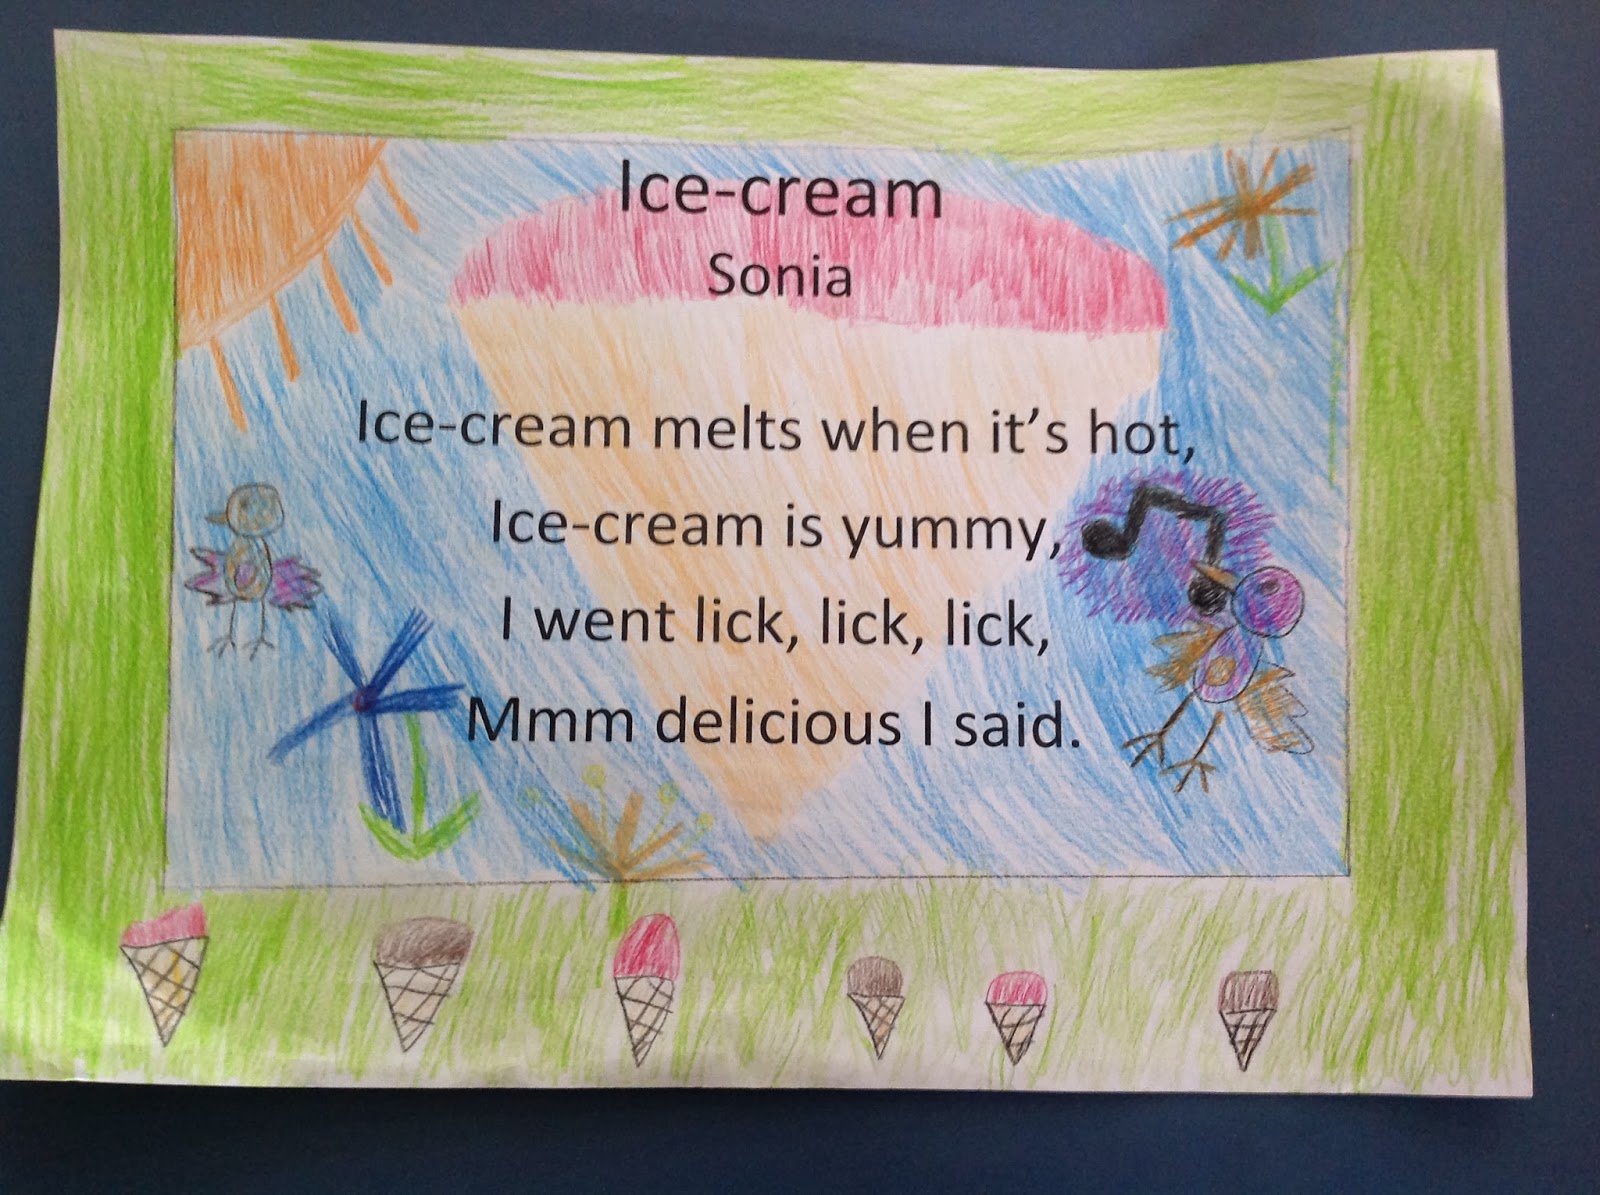 Ice-cream
Sonia
Ice-cream melts when it's hot,
Ice-cream is yummy,
I went lick, lick, lick,
Mmm delicious I said.